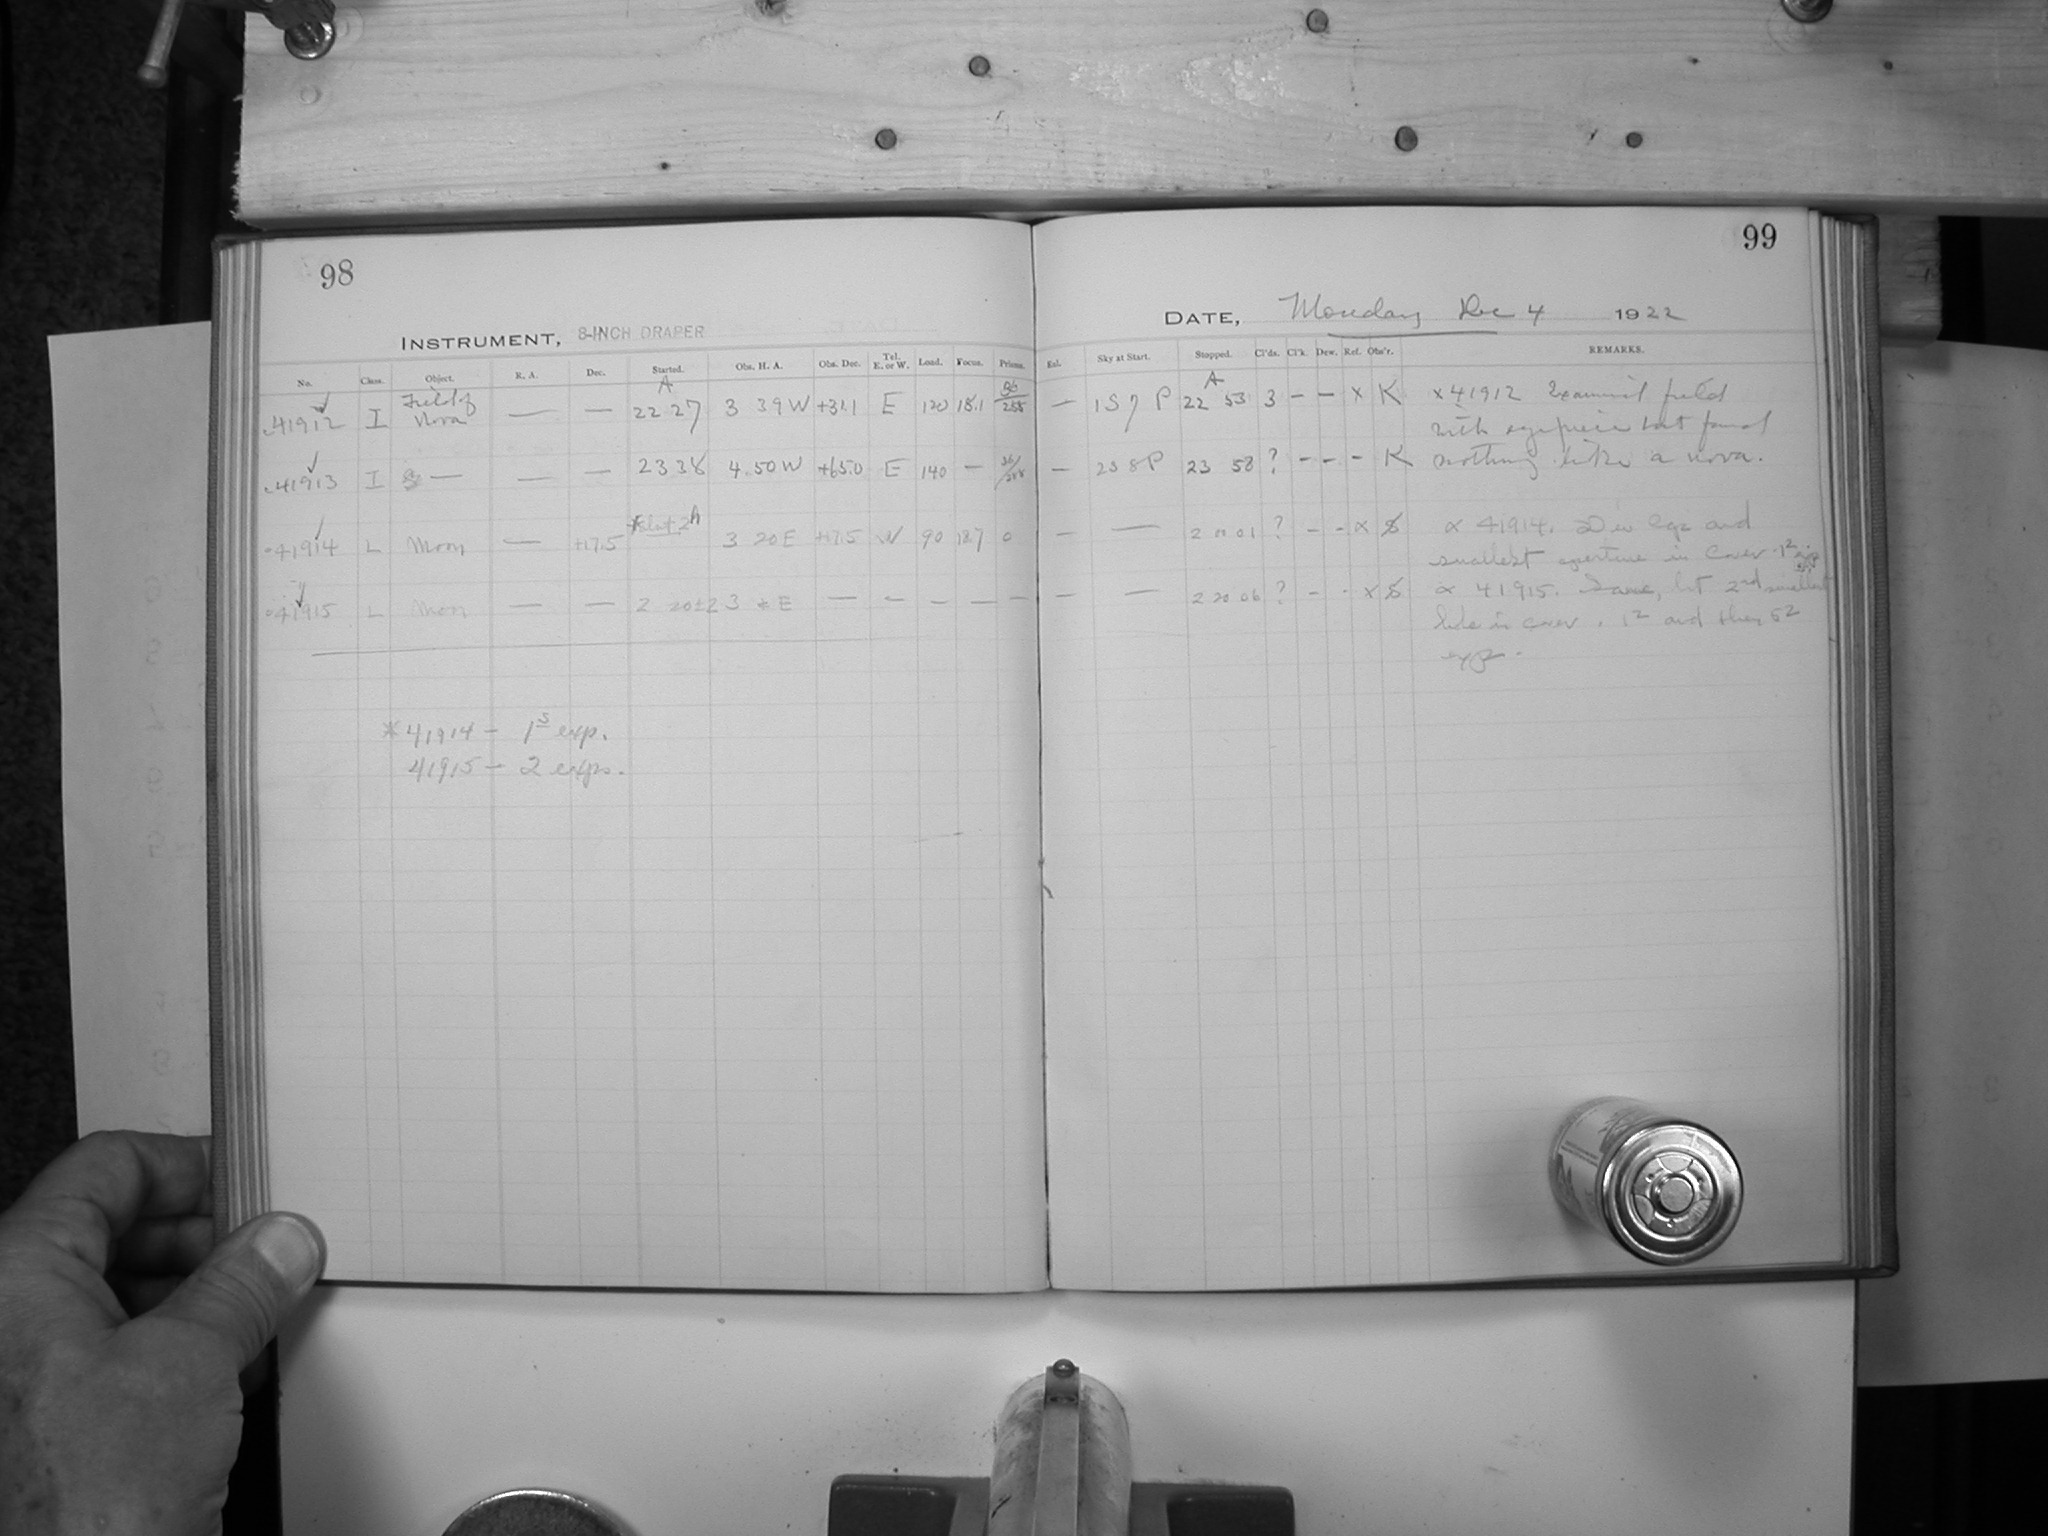 98
INSTRUMENT, 8-INCH DRAPER
No. Class. Object. R. A. Dec. Started. Obs. H. A. Obs. Dec. Tel. E. or W. Load. Focus. Prisms.
41912 I Field of Nova — — A 22 27 3 39 W +31.1 E 120 18.1
41913 I — — — 23 38 4.50 W +65.0 E 140 —
41914 L Moon — +17.5 3 20 E +17.5 W 90 18.7 0
41915 L Moon — — 2 20±2 3 * E — — — — —
* 41914 — 1s exp.
41915 — 2 exps.
99
DATE, Monday Dec 4 1922
Exl. Sky at Start. Stopped. Cl'ds. Cl'k. Dew. Ref. Obs'r. REMARKS.
— 1S 7 P A 22 53 3 - - x K x 41912 Examined field
with eyepiece but found
— 2S 8 P 23 58 ? - - - K nothing like a nova.
— — 2 ? - - x 41914. and
smallest aperture in cover.
— — 2 20 06 ? - - x 41915. Same, but 2nd smallest
hole in cover. and then
exp.